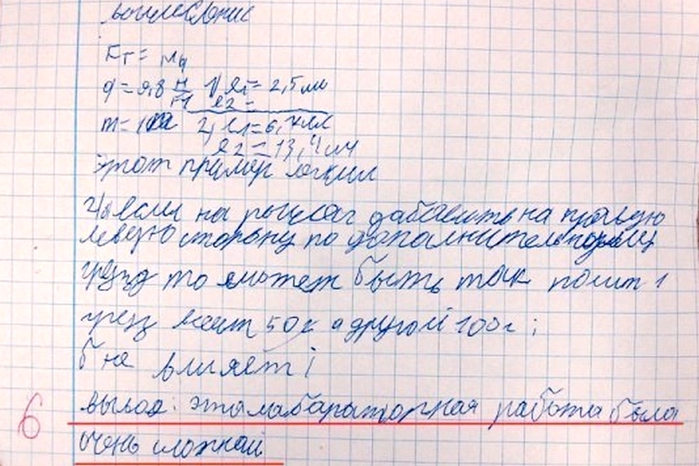 Вычисление
Fт = mg
g = 9,8 Н/кг 1) l1 = 2,5 см
l2 =
m = 2) l1 = 6, см
l2 = 13,4 см
этот пример легкий
если на рычаг на правую
левую сторону по дополнительному
грузу то может быть так 1
груз весит 50 а другой 100 г;
6 не влияет;
вывод: эта лабараторная работа была
6
очень сложной